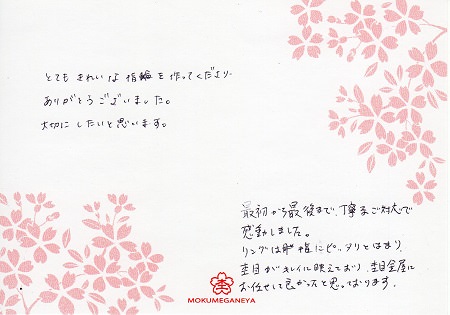 とても きれいな 指輪 を 作ってくださり
ありがとうございました。
大切に したいと思います。
最初から最後まで、丁寧なご対応で
感動しました。
リングは 指にピッタリとはまり、
杢目がキレイに映えており、杢目金屋に
お任せして良かったと思っております。
MOKUMEGANEYA